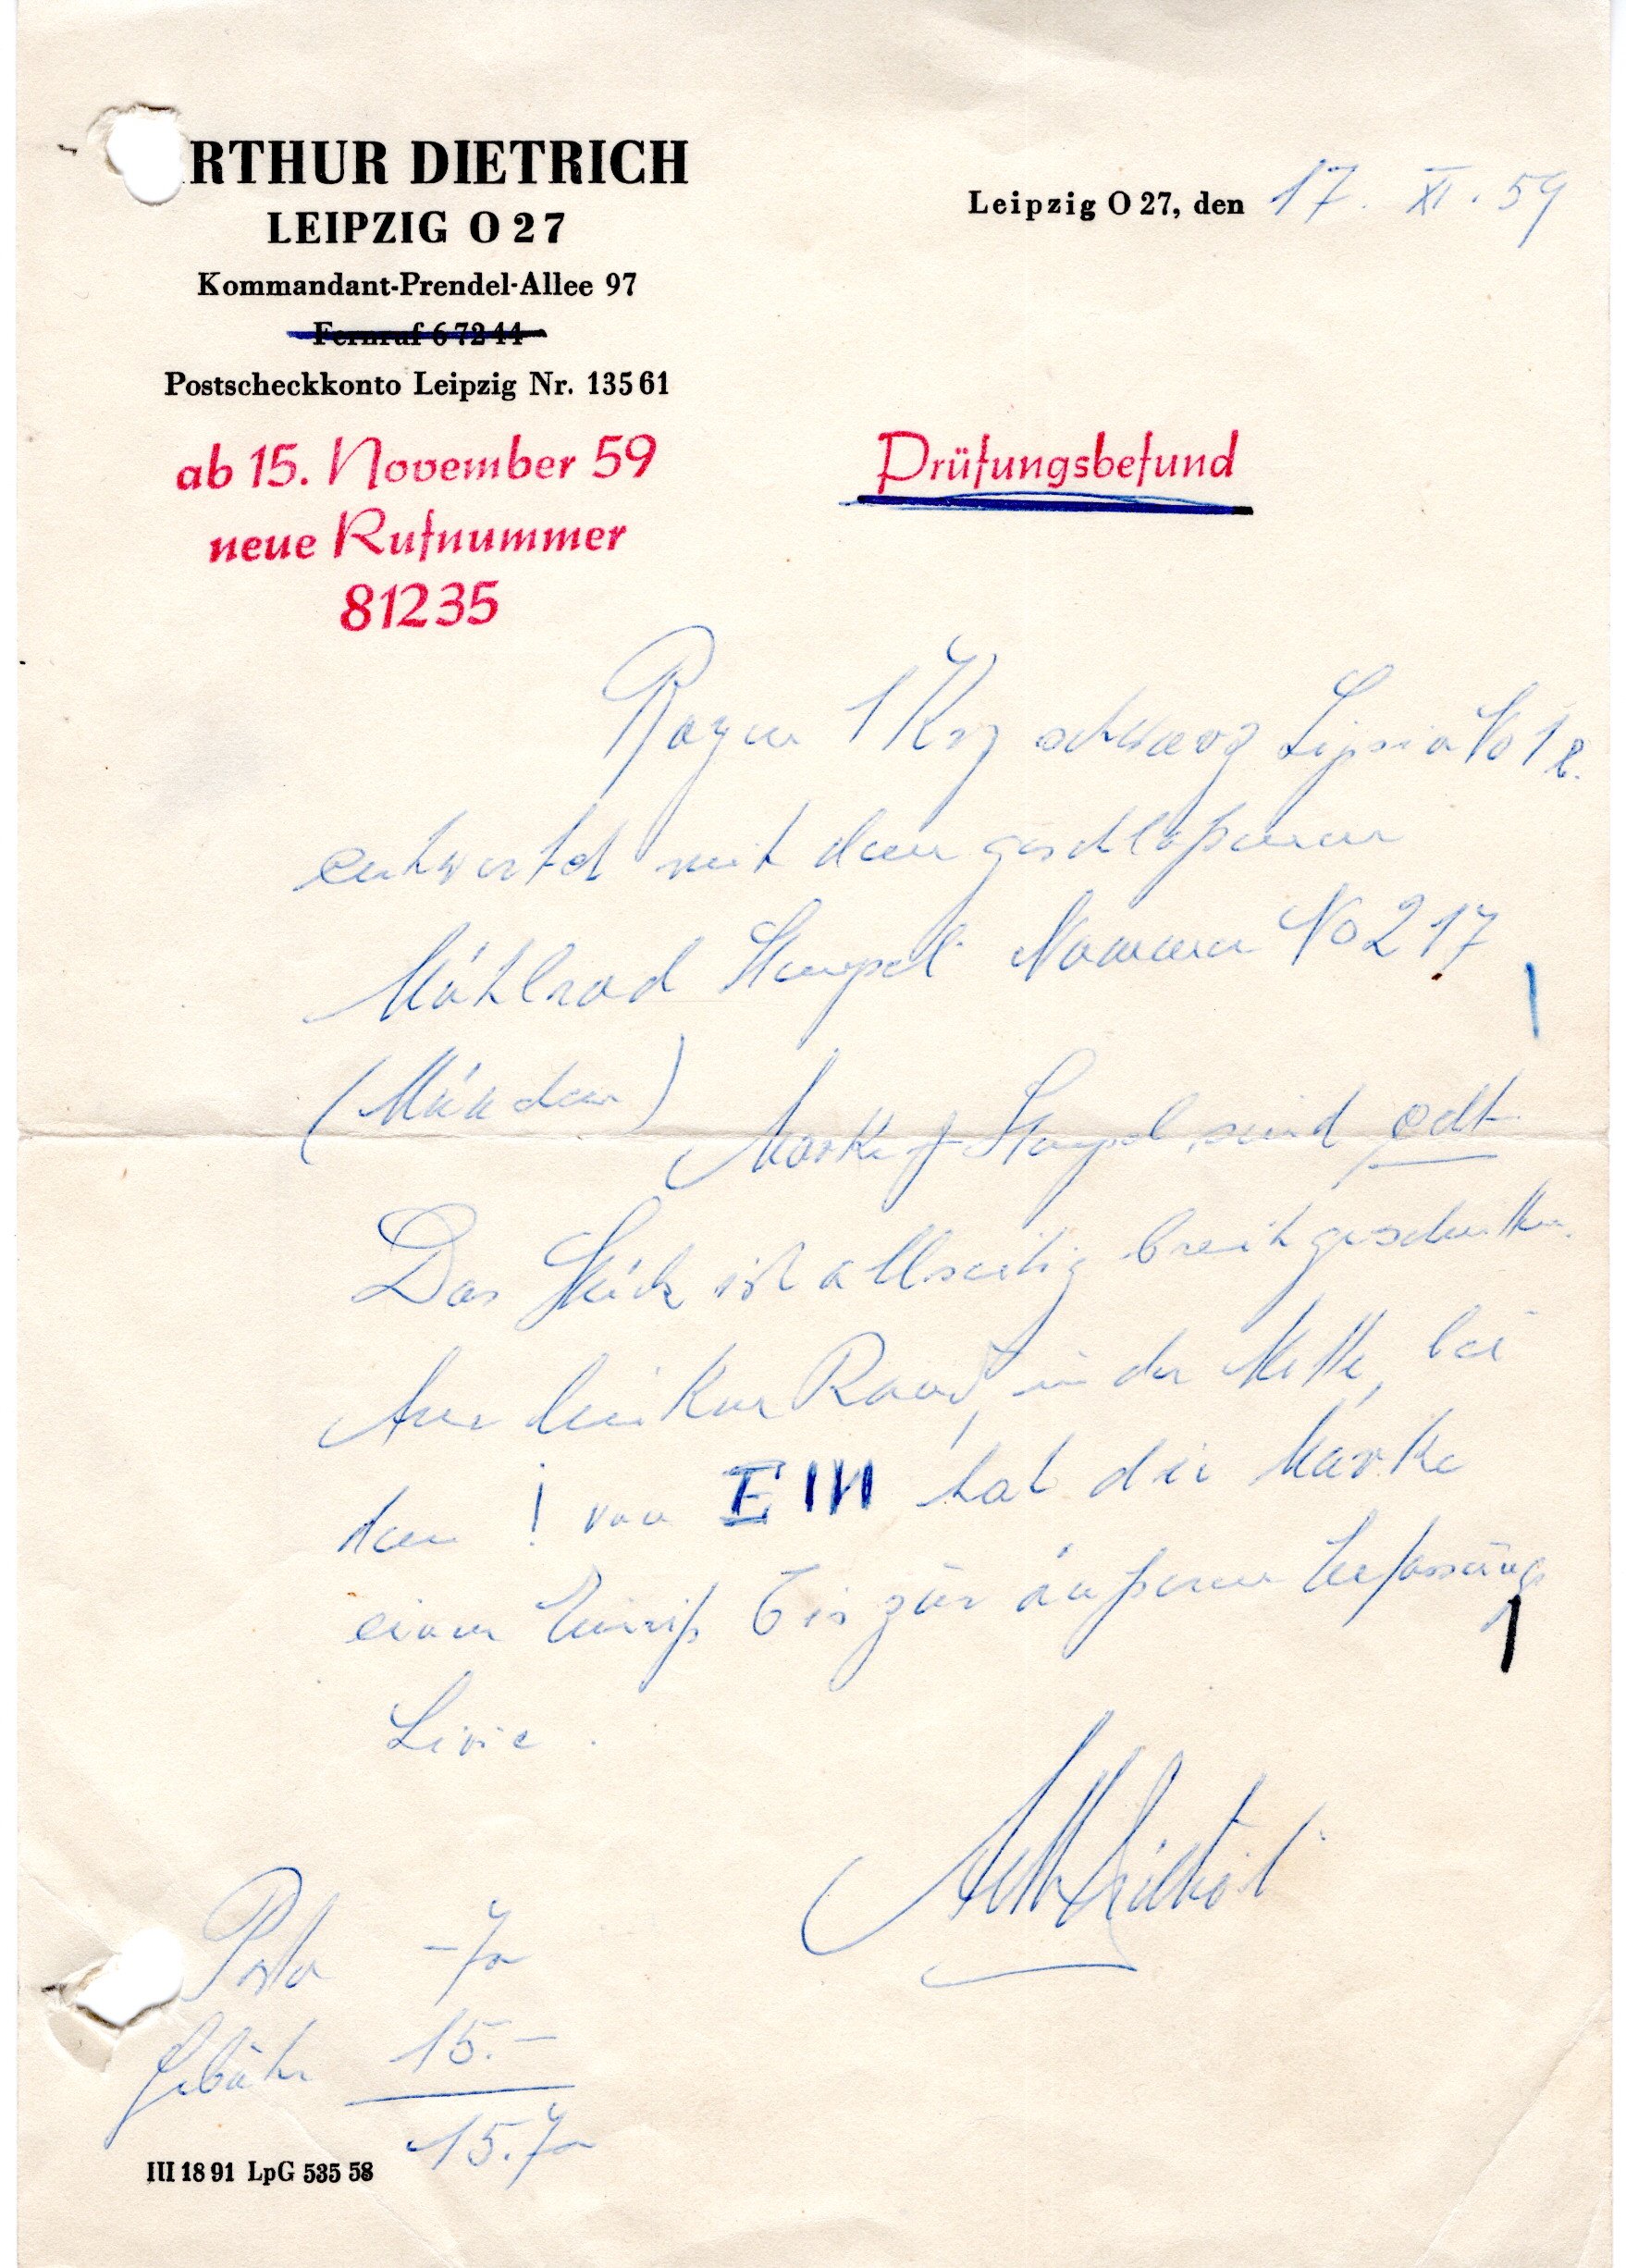 RTHUR DIETRICH
LEIPZIG O 27
Kommandant-Prendel-Allee 97
Fernruf 6 72 44
Postscheckkonto Leipzig Nr. 135 61
ab 15. November 59
neue Rufnummer
81235
Leipzig O 27, den 17. XI. 59
Prüfungsbefund
Bayern 1 Krz schwarz Lipsia No 1
entwertet mit dem geschloßenen
Mühlrad Stempel Nummer No 217
(München)
Marke & Stempel sind echt
Das Stück ist allseitig breitgeschnitten.
Am linken Rand, in der Mitte, bei
dem I von EIN hat die Marke
einen Einriß bis zur äußeren Einfassungs
Linie.
Arth Dietrich
Porto -70
Gebühr 15.-
15.70
III 18 91 LpG 535 58